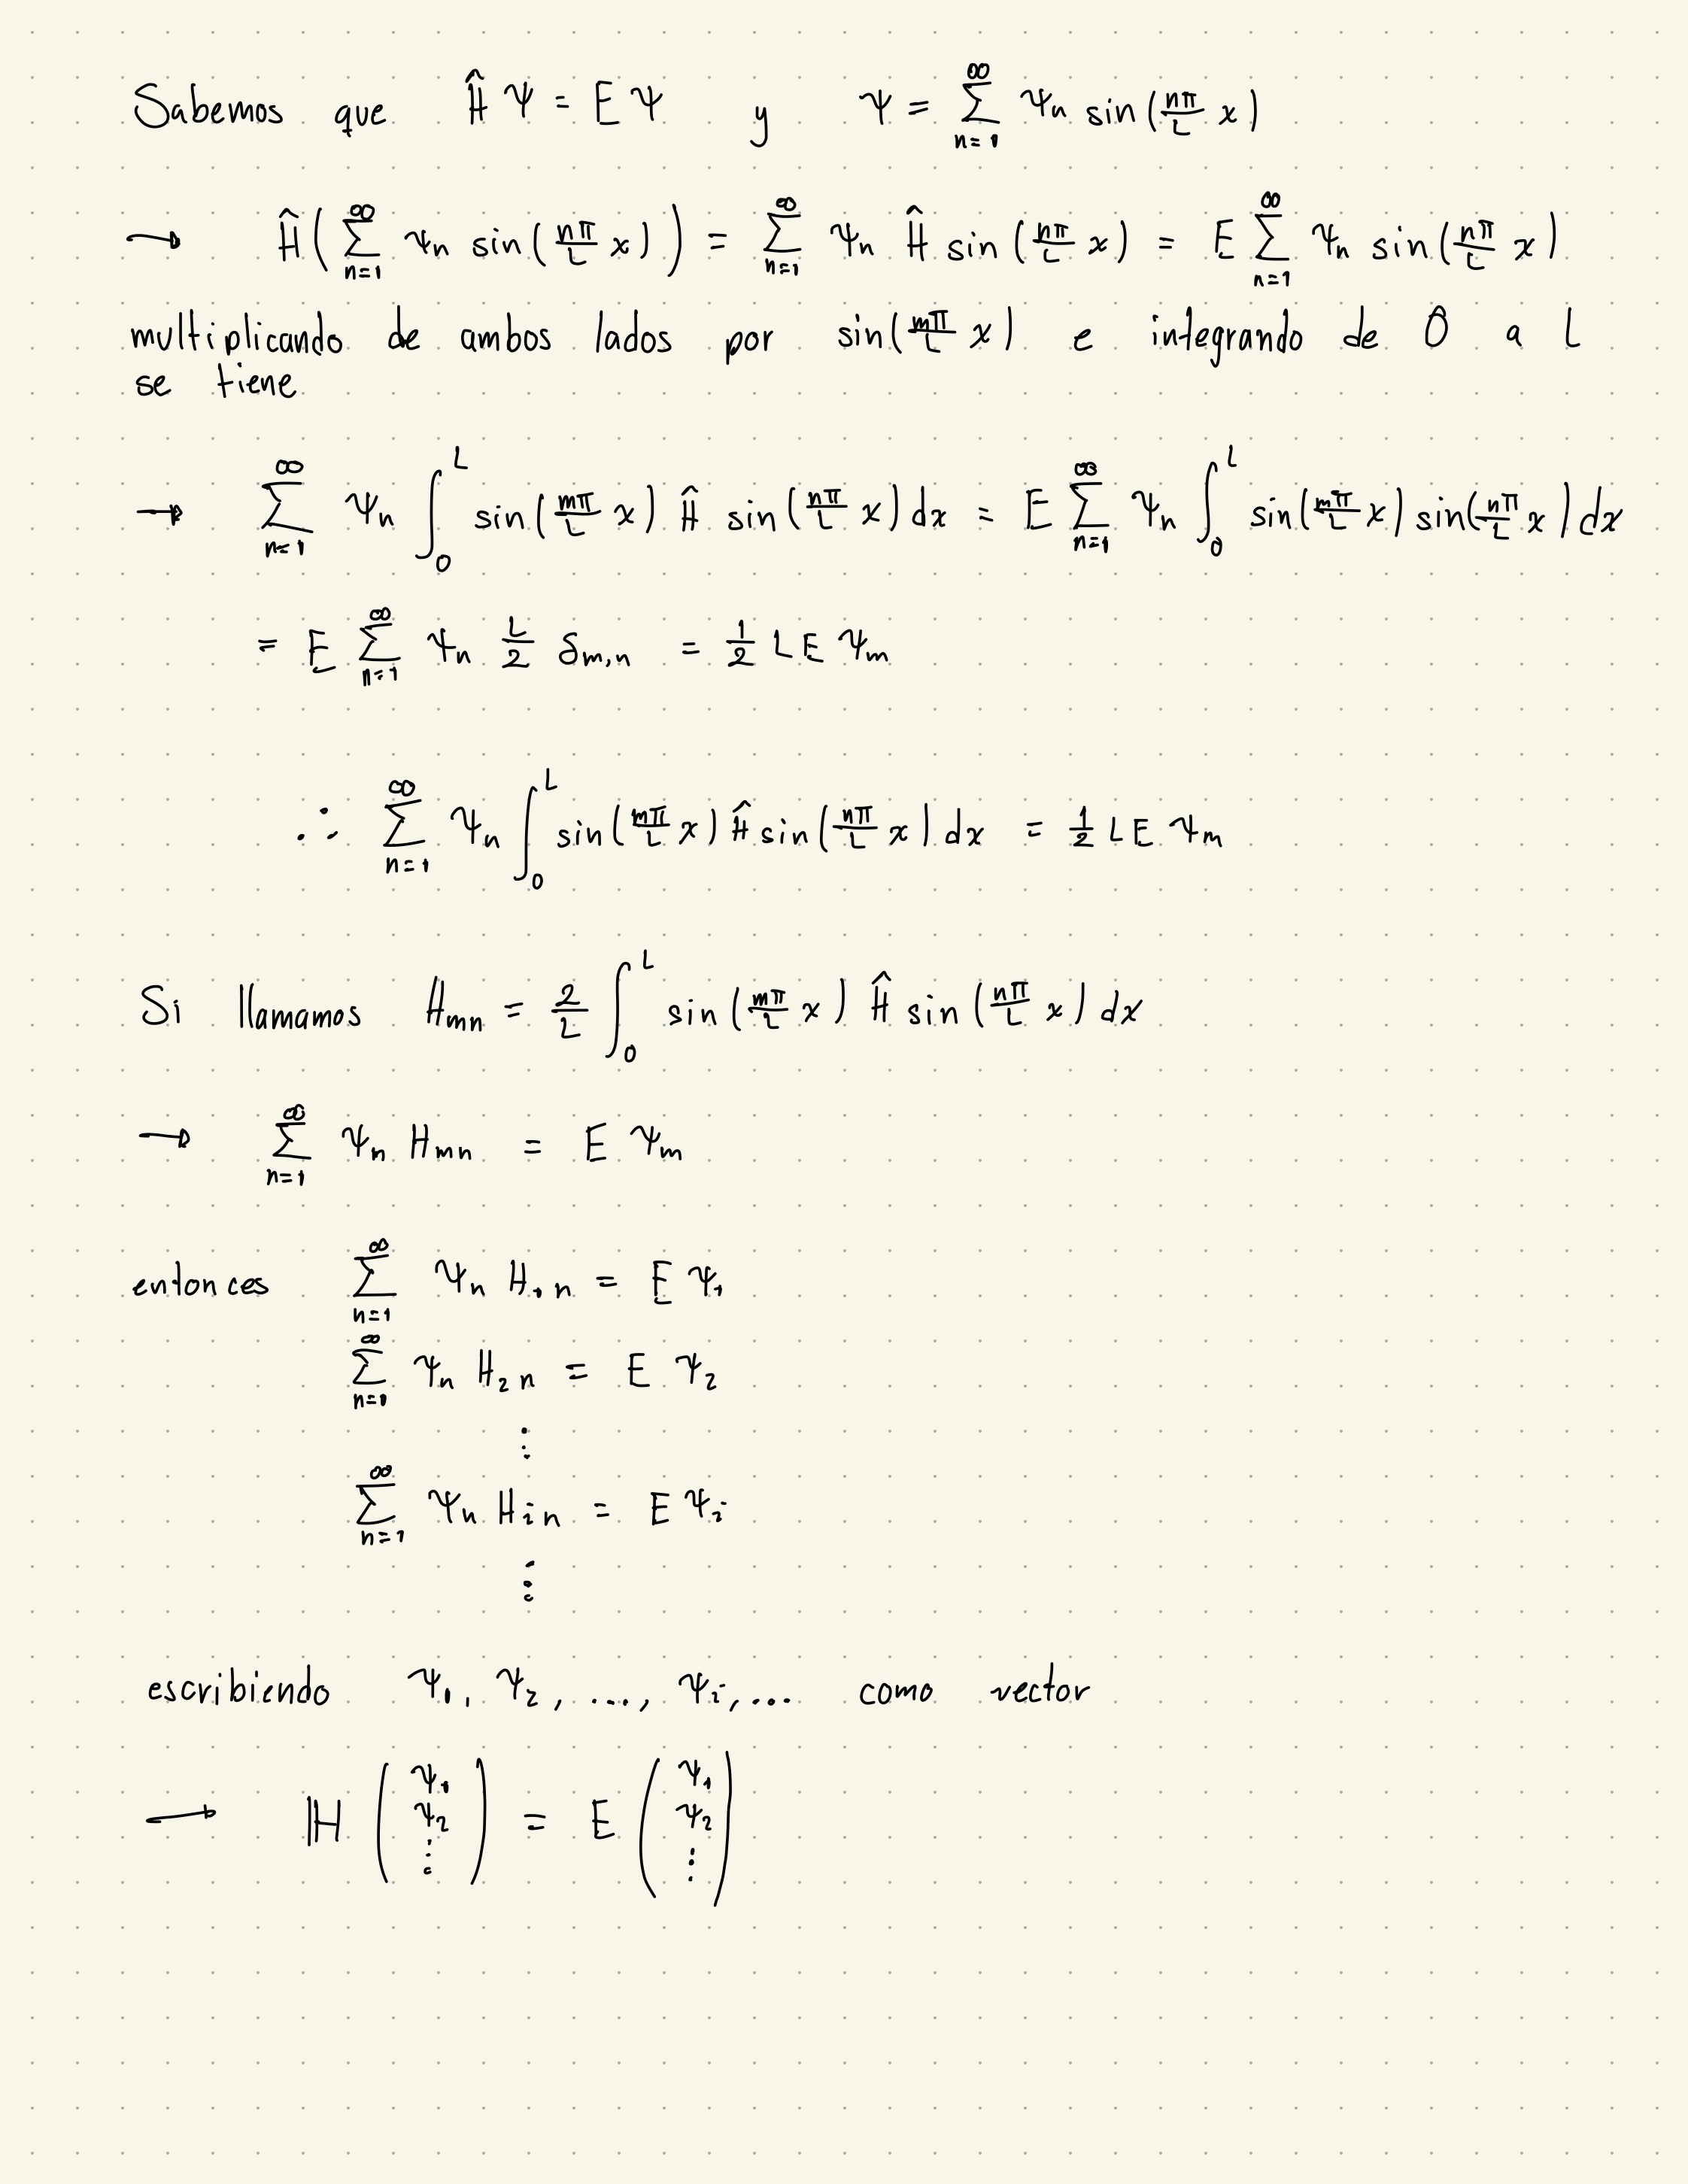 Sabemos que Ĥ Ψ = E Ψ y Ψ = ∑_{n=1}^{∞} Ψ_n sin(nπ/L x)
→ Ĥ(∑_{n=1}^{∞} Ψ_n sin(nπ/L x)) = ∑_{n=1}^{∞} Ψ_n Ĥ sin(nπ/L x) = E ∑_{n=1}^{∞} Ψ_n sin(nπ/L x)
multiplicando de ambos lados por sin(mπ/L x) e integrando de 0 a L
se tiene
→ ∑_{n=1}^{∞} Ψ_n ∫_0^L sin(mπ/L x) Ĥ sin(nπ/L x) dx = E ∑_{n=1}^{∞} Ψ_n ∫_0^L sin(mπ/L x) sin(nπ/L x) dx
= E ∑_{n=1}^{∞} Ψ_n L/2 δ_{m,n} = 1/2 L E Ψ_m
∴ ∑_{n=1}^{∞} Ψ_n ∫_0^L sin(mπ/L x) Ĥ sin(nπ/L x) dx = 1/2 L E Ψ_m
Si llamamos H_{mn} = 2/L ∫_0^L sin(mπ/L x) Ĥ sin(nπ/L x) dx
→ ∑_{n=1}^{∞} Ψ_n H_{mn} = E Ψ_m
entonces ∑_{n=1}^{∞} Ψ_n H_{1n} = E Ψ_1
∑_{n=1}^{∞} Ψ_n H_{2n} = E Ψ_2
⋮
∑_{n=1}^{∞} Ψ_n H_{in} = E Ψ_i
⋮
escribiendo Ψ_1, Ψ_2, ...., Ψ_i, ... como vector
→ ℍ (Ψ_1 Ψ_2 ⋮) = E (Ψ_1 Ψ_2 ⋮)